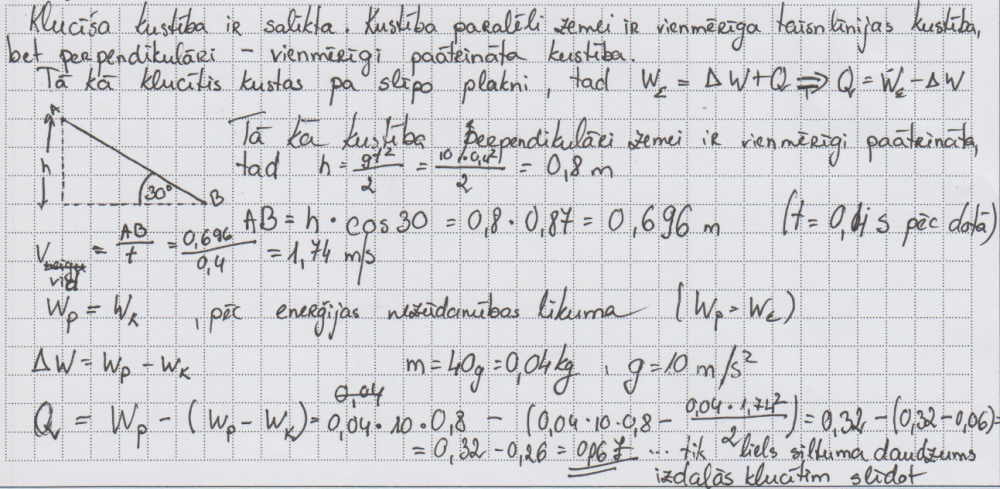 Klucīša kustība ir salikta. Kustība paralēli zemei ir vienmērīga taisnlīnijas kustība,
bet perpendikulāri - vienmērīgi paātrināta kustība.
Tā kā klucītis kustas pa slīpo plakni, tad W_ε = ΔW + Q ⇒ Q = W_ε - ΔW
A
h
30°
B
Tā kā kustība perpendikulāri zemei ir vienmērīgi paātrināta,
tad h = gt²/2 = 10·0,4²/2 = 0,8 m
AB = h · cos30 = 0,8 · 0,87 = 0,696 m (t = 0,4 s pēc dotā)
V vid = AB/t = 0,696/0,4 = 1,74 m/s
Wp = Wk, pēc enerģijas nezūdamības likuma (Wp = W_ε)
ΔW = Wp - Wk m = 40g = 0,04 kg, g = 10 m/s²
Q = Wp - (Wp - Wk) = 0,04 · 10 · 0,8 - (0,04 · 10 · 0,8 - 0,04 · 1,74²/2) = 0,32 - (0,32 - 0,06) =
= 0,32 - 0,26 = 0,06 J ... tik liels siltuma daudzums
izdalās klucītim slīdot